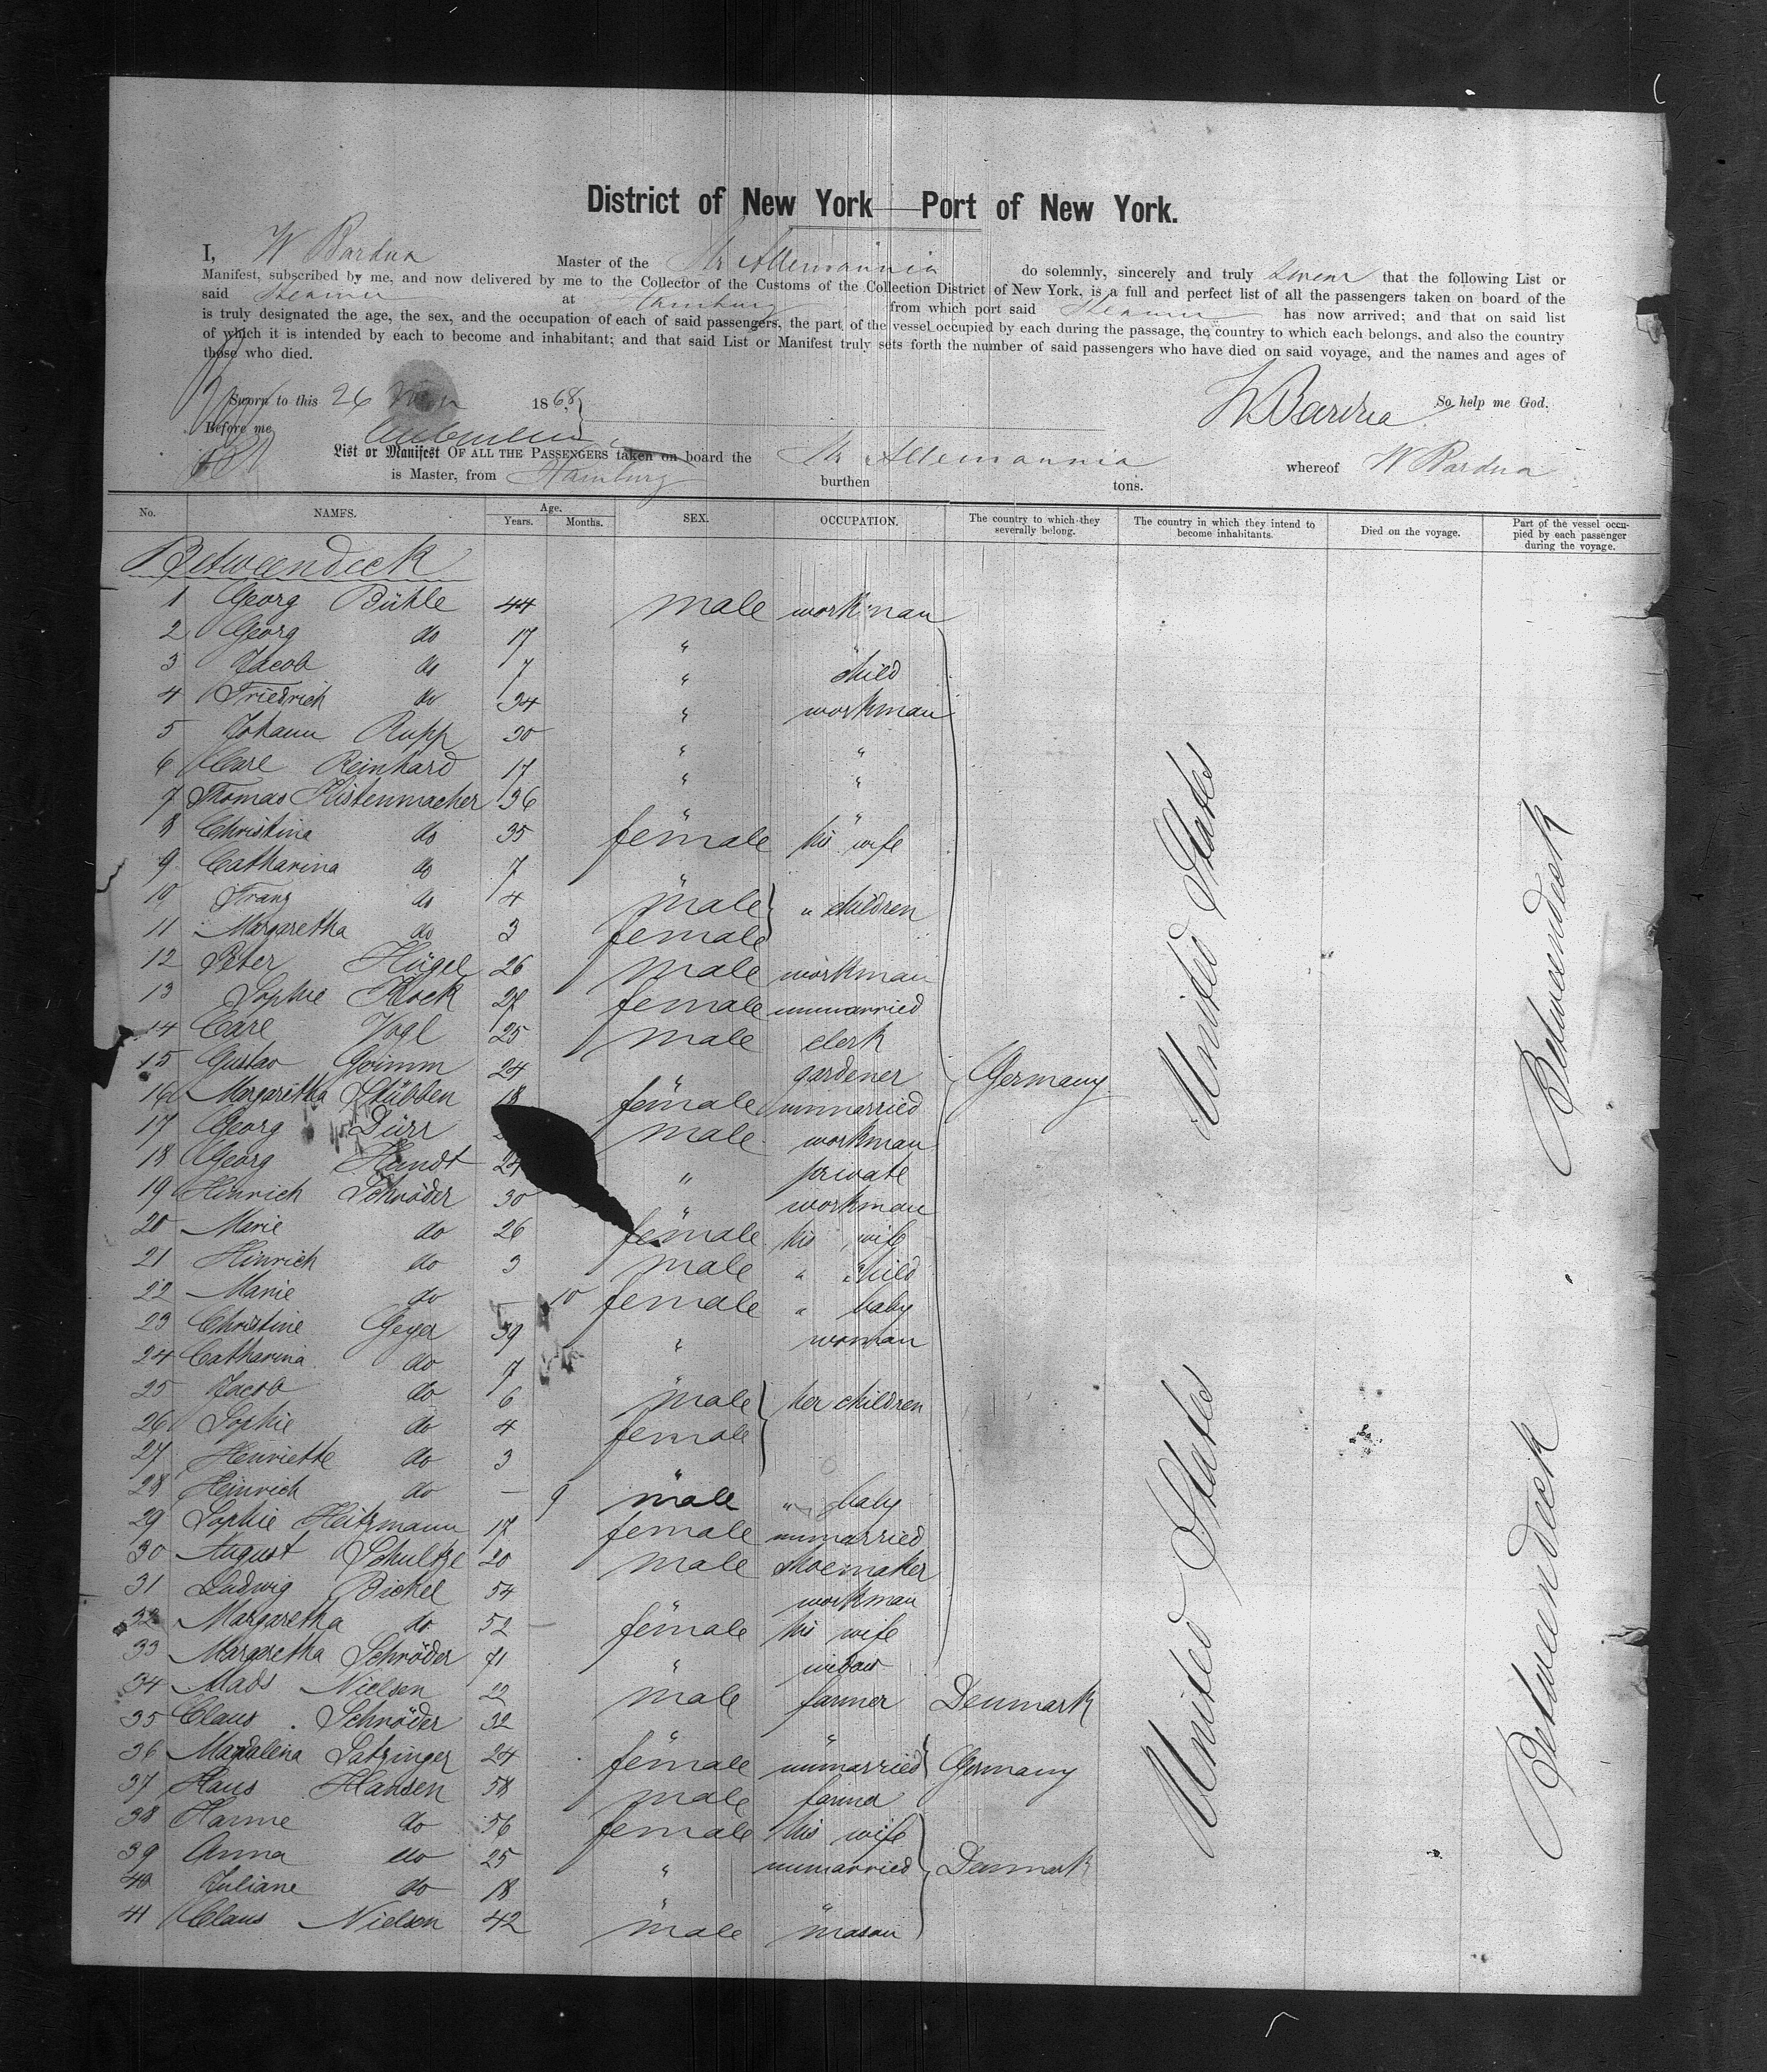 District of New York — Port of New York.
I, W Bardua Master of the Str Allemannia do solemnly, sincerely and truly swear that the following List or
Manifest, subscribed by me, and now delivered by me to the Collector of the Customs of the Collection District of New York, is a full and perfect list of all the passengers taken on board of the
said Steamer at Hamburg from which port said Steamer has now arrived; and that on said list
is truly designated the age, the sex, and the occupation of each of said passengers, the part of the vessel occupied by each during the passage, the country to which each belongs, and also the country
of which it is intended by each to become and inhabitant; and that said List or Manifest truly sets forth the number of said passengers who have died on said voyage, and the names and ages of
those who died.
Sworn to this 26 1868, W Bardua So help me God.
Before me
List or Manifest OF ALL THE PASSENGERS taken on board the Str Allemannia whereof W Bardua
is Master, from Hamburg burthen tons.
No. NAMES. Age. Years. Months. SEX. OCCUPATION. The country to which they severally belong. The country in which they intend to become inhabitants. Died on the voyage. Part of the vessel occupied by each passenger during the voyage.
Betweendeck
1 Georg Bühle 44 male workman
2 Georg do 17 " "
3 Jacob do 7 " child
4 Friedrich do 34 " workman
5 Johann Rupp 30 " "
6 Carl Reinhard 17 " "
7 Thomas Kistenmacher 36 " "
8 Christina do 35 female his wife
9 Catharina do 7 "
10 Franz do 4 male " children
11 Margaretha do 3 female
12 Peter Hügel 26 male workman
13 Sophie Kock 21 female unmarried
14 Carl Vogl 25 male clerk
15 Gustav Grimm 24 " gardener
16 Margaretha Stübben 18 female unmarried
17 Georg Dürr male workman
18 Georg Hundt 24 " private
19 Hinrich Schröder 30 " workman
20 Marie do 26 female his wife
21 Hinrich do 3 male " child
22 Marie do — 10 female " baby
23 Christine Geyer 39 " woman
24 Catharina do 7 "
25 Jacob do 6 male her children
26 Sophie do 4 female
27 Henriette do 3 "
28 Heinrich do — 9 male " baby
29 Sophie Heitzmann 17 female unmarried
30 August Schultze 20 male shoemaker
31 Ludwig Bickel 54 " workman
32 Margaretha do 52 female his wife
33 Margaretha Schröder 71 " widow
Germany
34 Mads Nielsen 22 male farmer Denmark
35 Claus Schröder 32 " "
36 Magdalena Satzinger 24 female unmarried Germany
37 Hans Hansen 58 male farmer
38 Hanne do 56 female his wife
39 Anna do 25 " unmarried Denmark
40 Juliane do 18 " "
41 Claus Nielsen 42 male mason
United States
United States
Betweendeck
Betweendeck